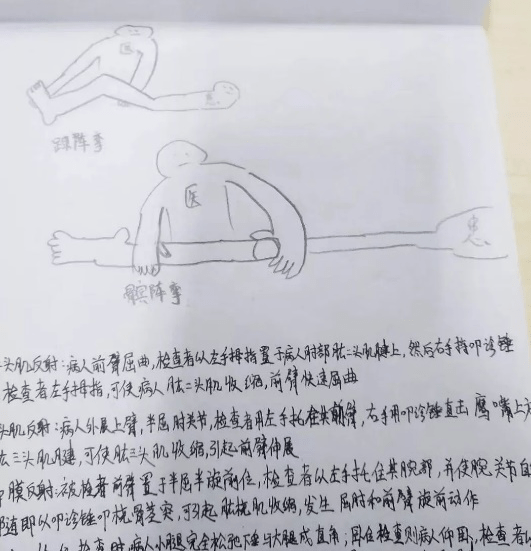 医
踝阵挛
医
患
髌阵挛
头肌反射:病人前臂屈曲,检查者以左手拇指置于病人肘部肱二头肌腱上,然后右手持叩诊锤
检查者左手拇指,可使病人肱二头肌收缩,前臂快速屈曲
头肌反射:病人外展上臂,半屈肘关节,检查者用左手托住其前臂,右手用叩诊锤直击鹰嘴上方
肱三头肌腱,可使肱三头肌收缩,引起前臂伸展
膜反射:被检者前臂置于半屈半旋前位,检查者以左手托住其腕部,并使腕关节自
随即以叩诊锤叩桡骨茎突,可引起肱桡肌收缩,发生屈肘和前臂旋前动作
检查时病人小腿完全松弛下垂与大腿成直角;卧位检查则病人仰卧,检查者